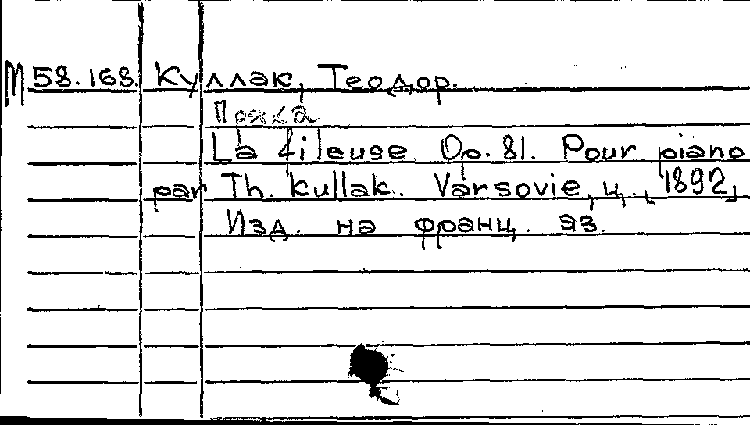 М 58.168. Куллак, Теодор.
Пряха
La fileuse Op. 81. Pour piano
par Th. Kullak. Varsovie, ц., [1892]
Изд. на франц. яз.